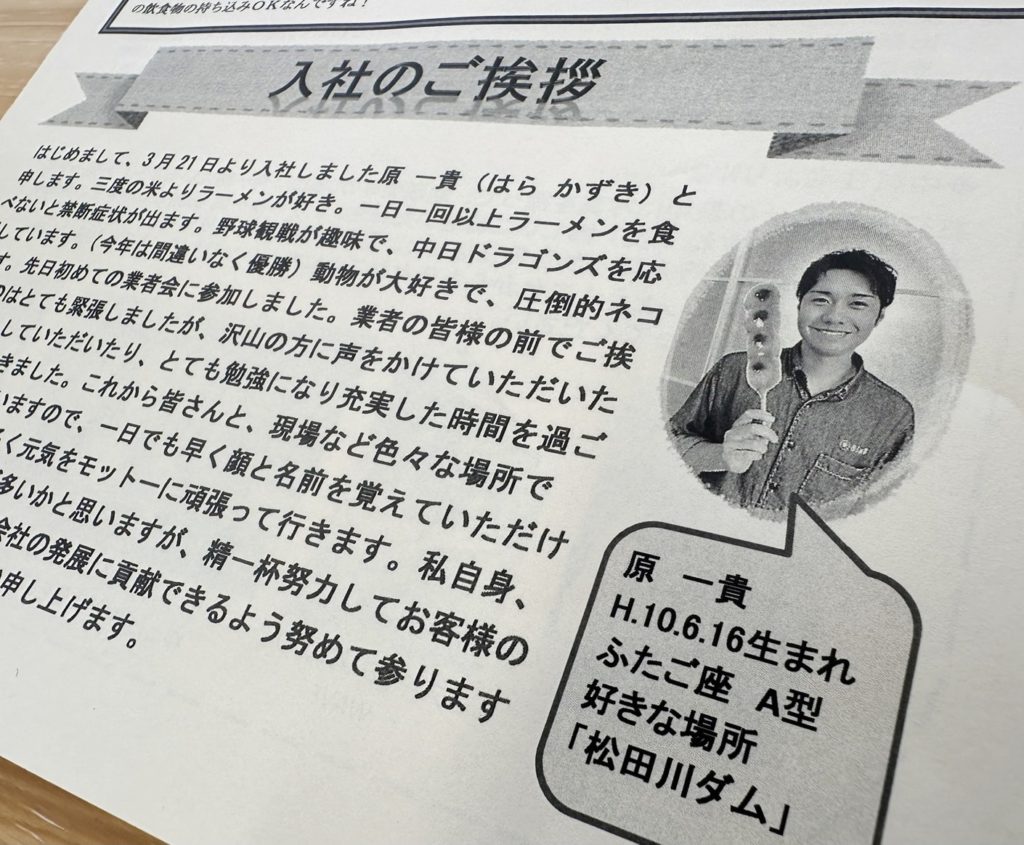 の飲食物の持ち込みOKなんですね！
入社のご挨拶
はじめまして、3月21日より入社しました原 一貴（はら かずき）と
申します。三度の米よりラーメンが好き。一日一回以上ラーメンを食
べないと禁断症状が出ます。野球観戦が趣味で、中日ドラゴンズを応
しています。（今年は間違いなく優勝）動物が大好きで、圧倒的ネコ
す。先日初めての業者会に参加しました。業者の皆様の前でご挨
のはとても緊張しましたが、沢山の方に声をかけていただいた
していただいたり、とても勉強になり充実した時間を過ご
きました。これから皆さんと、現場など色々な場所で
いますので、一日でも早く顔と名前を覚えていただけ
く元気をモットーに頑張って行きます。私自身、
多いかと思いますが、精一杯努力してお客様の
会社の発展に貢献できるよう努めて参ります
申し上げます。
原 一貴
H.10.6.16生まれ
ふたご座 A型
好きな場所
「松田川ダム」